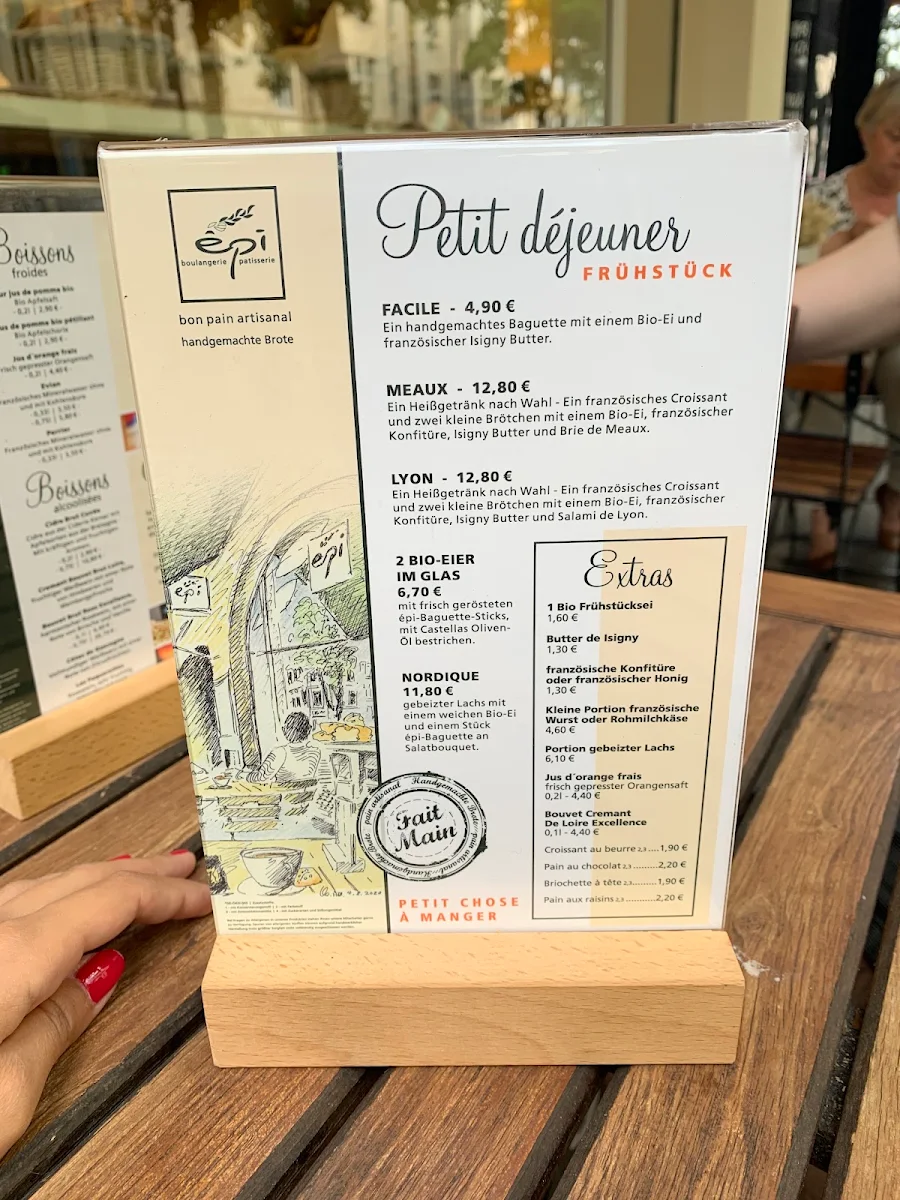 Boissons
froides
jus de pomme bio
Bio Apfelsaft
- 0,2l | 2,90 € -
jus de pomme bio pétillant
Bio Apfelschorle
- 0,2l | 2,90 € -
Jus d´orange frais
frisch gepresster Orangensaft
- 0,2l | 4,40 € -
Evian
französisches Mineralwasser ohne
und mit Kohlensäure
Perrier
Französisches Mineralwasser
mit Kohlensäure
Boissons
alcoolisées
Cidre Brut
êpi
boulangerie patisserie
bon pain artisanal
handgemachte Brote
Petit déjeuner
FRÜHSTÜCK
FACILE - 4,90 €
Ein handgemachtes Baguette mit einem Bio-Ei und
französischer Isigny Butter.
MEAUX - 12,80 €
Ein Heißgetränk nach Wahl - Ein französisches Croissant
und zwei kleine Brötchen mit einem Bio-Ei, französischer
Konfitüre, Isigny Butter und Brie de Meaux.
LYON - 12,80 €
Ein Heißgetränk nach Wahl - Ein französisches Croissant
und zwei kleine Brötchen mit einem Bio-Ei, französischer
Konfitüre, Isigny Butter und Salami de Lyon.
2 BIO-EIER
IM GLAS
6,70 €
mit frisch gerösteten
êpi-Baguette-Sticks,
mit Castellas Oliven-
Öl bestrichen.
NORDIQUE
11,80 €
gebeizter Lachs mit
einem weichen Bio-Ei
und einem Stück
êpi-Baguette an
Salatbouquet.
Extras
1 Bio Frühstücksei
1,60 €
Butter de Isigny
1,30 €
französische Konfitüre
oder französischer Honig
1,30 €
Kleine Portion französische
Wurst oder Rohmilchkäse
4,60 €
Portion gebeizter Lachs
6,10 €
Jus d´orange frais
frisch gepresster Orangensaft
0,2l - 4,40 €
Bouvet Cremant
De Loire Excellence
0,1l - 4,40 €
Croissant au beurre 2,3 ....1,90 €
Pain au chocolat 2,3 .........2,20 €
Briochette à tête 2,3.........1,90 €
Pain aux raisins 2,3 ...........2,20 €
êpi
êpi
pain artisanal Handgemachte Brote pain artisanal Handgemachte Brote
Fait
Main
PETIT CHOSE
À MANGER